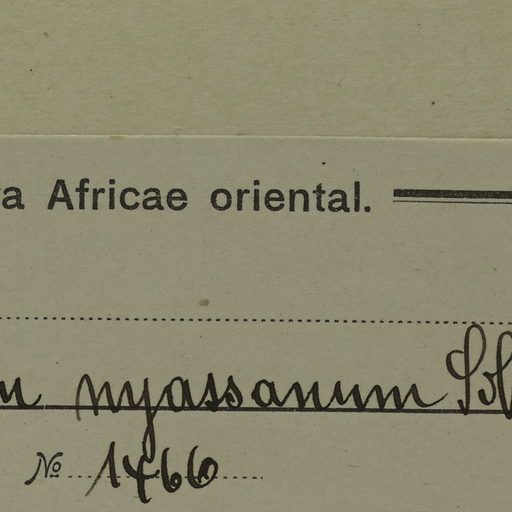 a Africae oriental.
nyassanum
№ 1466